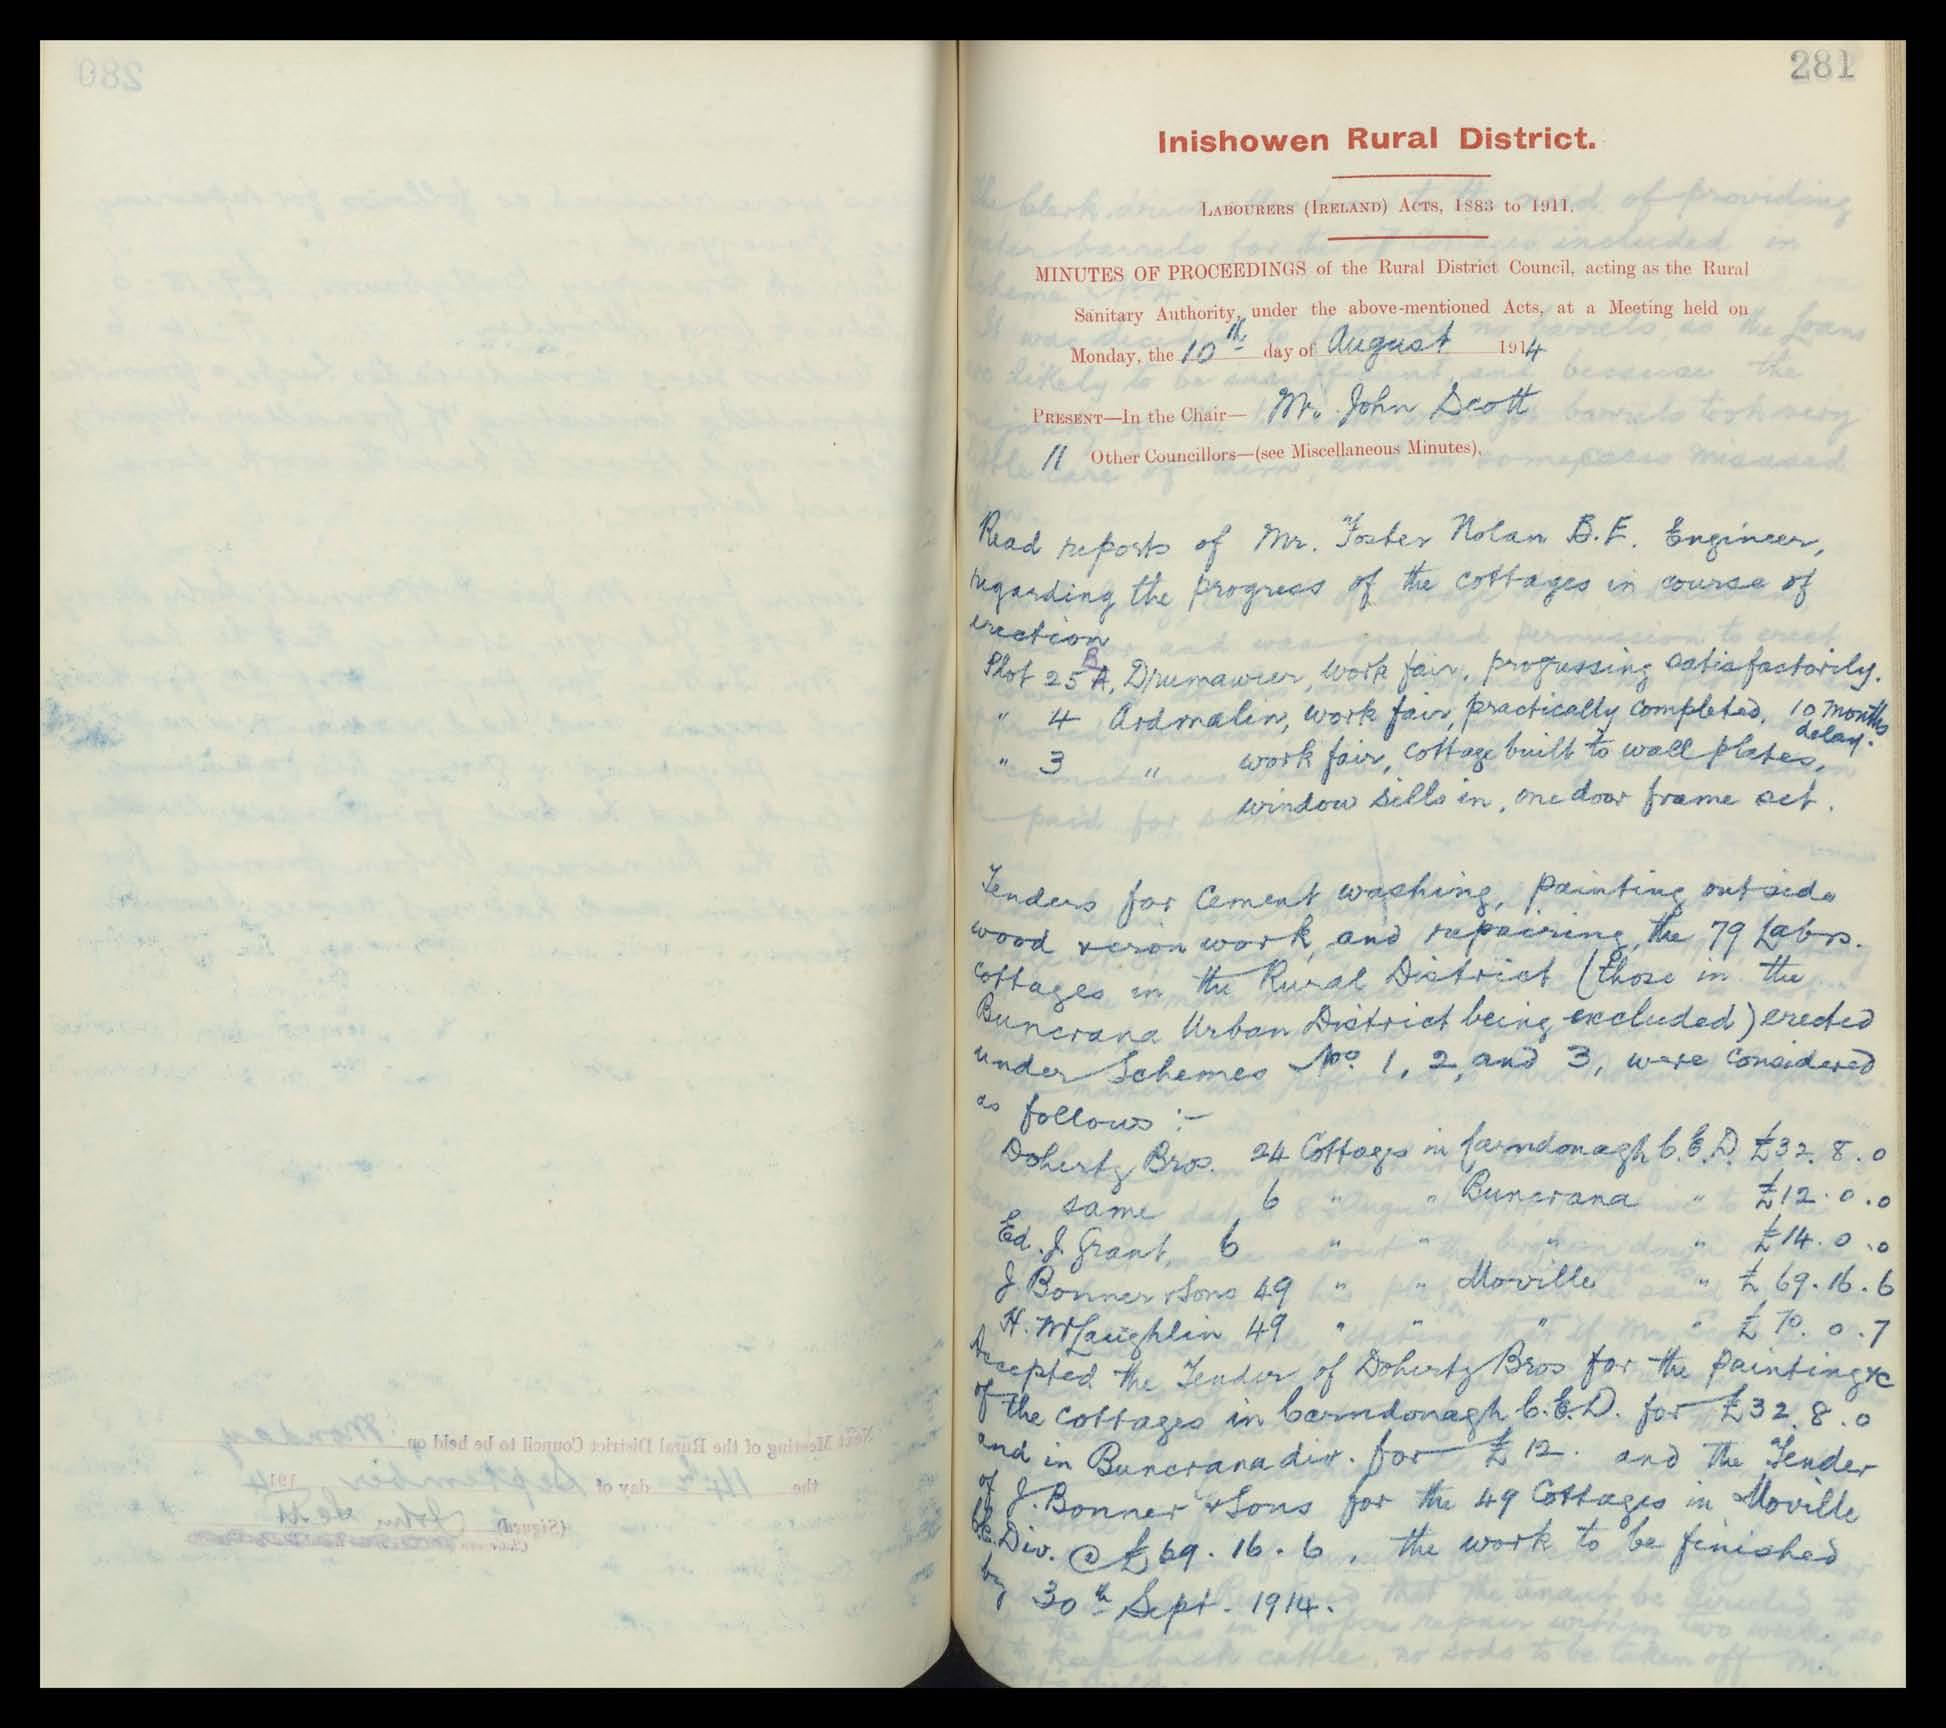 281
Inishowen Rural District.
LABOURERS (IRELAND) ACTS, 1883 to 1911.
MINUTES OF PROCEEDINGS of the Rural District Council, acting as the Rural
Sanitary Authority, under the above-mentioned Acts, at a Meeting held on
Monday, the 10th day of August 1914
PRESENT—In the Chair— Mr. John Scott
11 Other Councillors—(see Miscellaneous Minutes),
Read reports of Mr. Foster Nolan B.E. Engineer,
regarding the progress of the cottages in course of
erection
Plot 25 A, Drumawier, work fair, progressing satisfactorily.
" 4 Ardmalin, work fair, practically completed, 10 months
delay.
" 3 " work fair, cottage built to wall plates,
window sills in, one door frame set.
Tenders for Cement washing, painting outside
wood & iron work, and repairing, the 79 Labrs.
cottages in the Rural District (those in the
Buncrana Urban District being excluded) erected
under Schemes Nos. 1, 2, and 3, were considered
as follows :-
Doherty Bros. 24 Cottages in Carndonagh C.E.D. £32.8.0
same 6 " " Buncrana " £12.0.0
Ed. J. Grant, 6 " " " " £14.0.0
J. Bonner & Sons 49 " " Moville " £69.16.6
H. McLaughlin 49 " " " " £70.0.7
Accepted the Tender of Doherty Bros for the painting &c
of the cottages in Carndonagh C.E.D. for £32.8.0
and in Buncrana div. for £12. and the Tender
of J. Bonner & Sons for the 49 Cottages in Moville
Div. @ £69.16.6, the work to be finished
by 30th Sept. 1914.